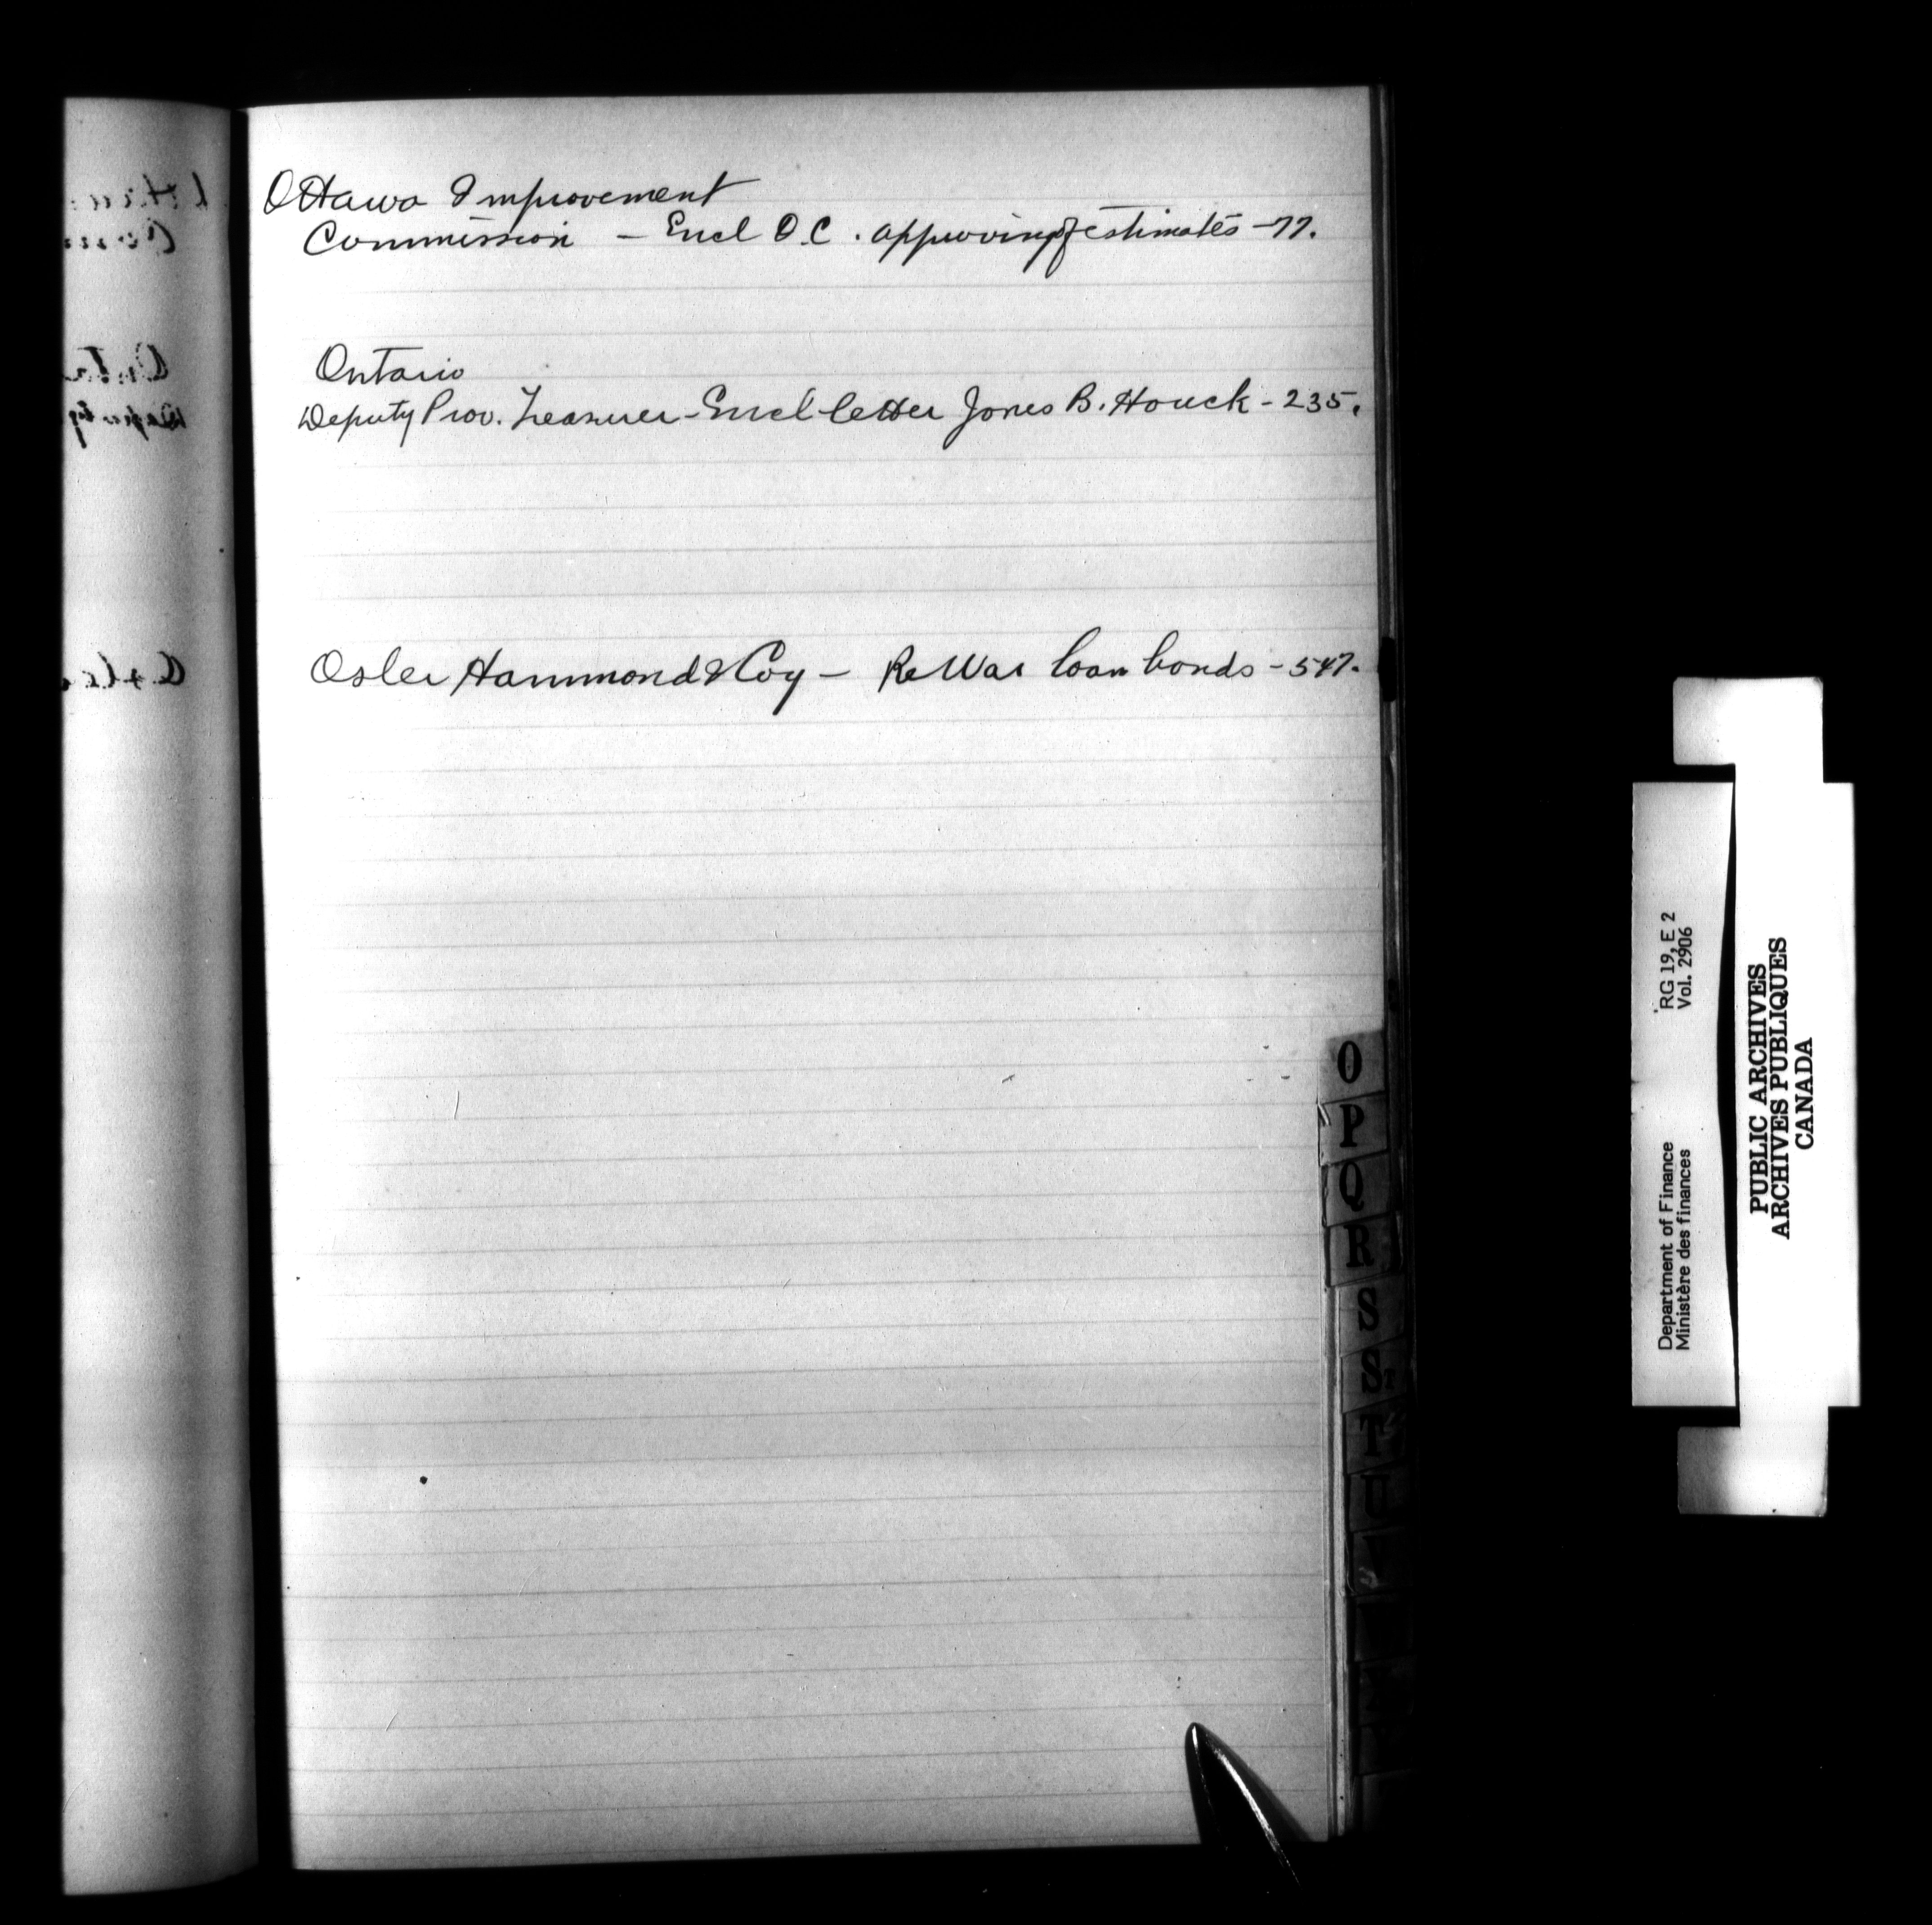 Ottawa Improvement
Commission - Encl O.C. approving of estimates - 77.
Ontario
Deputy Prov. Treasurer - Encl letter Jones B. Houck - 235.
Osler Hammond & Coy - Re War loan bonds - 547.
O
P
Q
R
S
S
T
U
V
RG 19, E 2
Vol. 2906
Department of Finance
Ministère des finances
PUBLIC ARCHIVES
ARCHIVES PUBLIQUES
CANADA